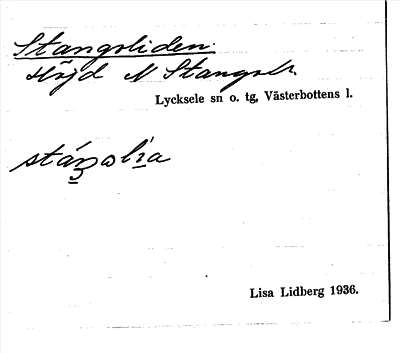 Stangsliden.
Höjd N Stangstr.
Lycksele sn o. tg, Västerbottens l.
Lisa Lidberg 1936.